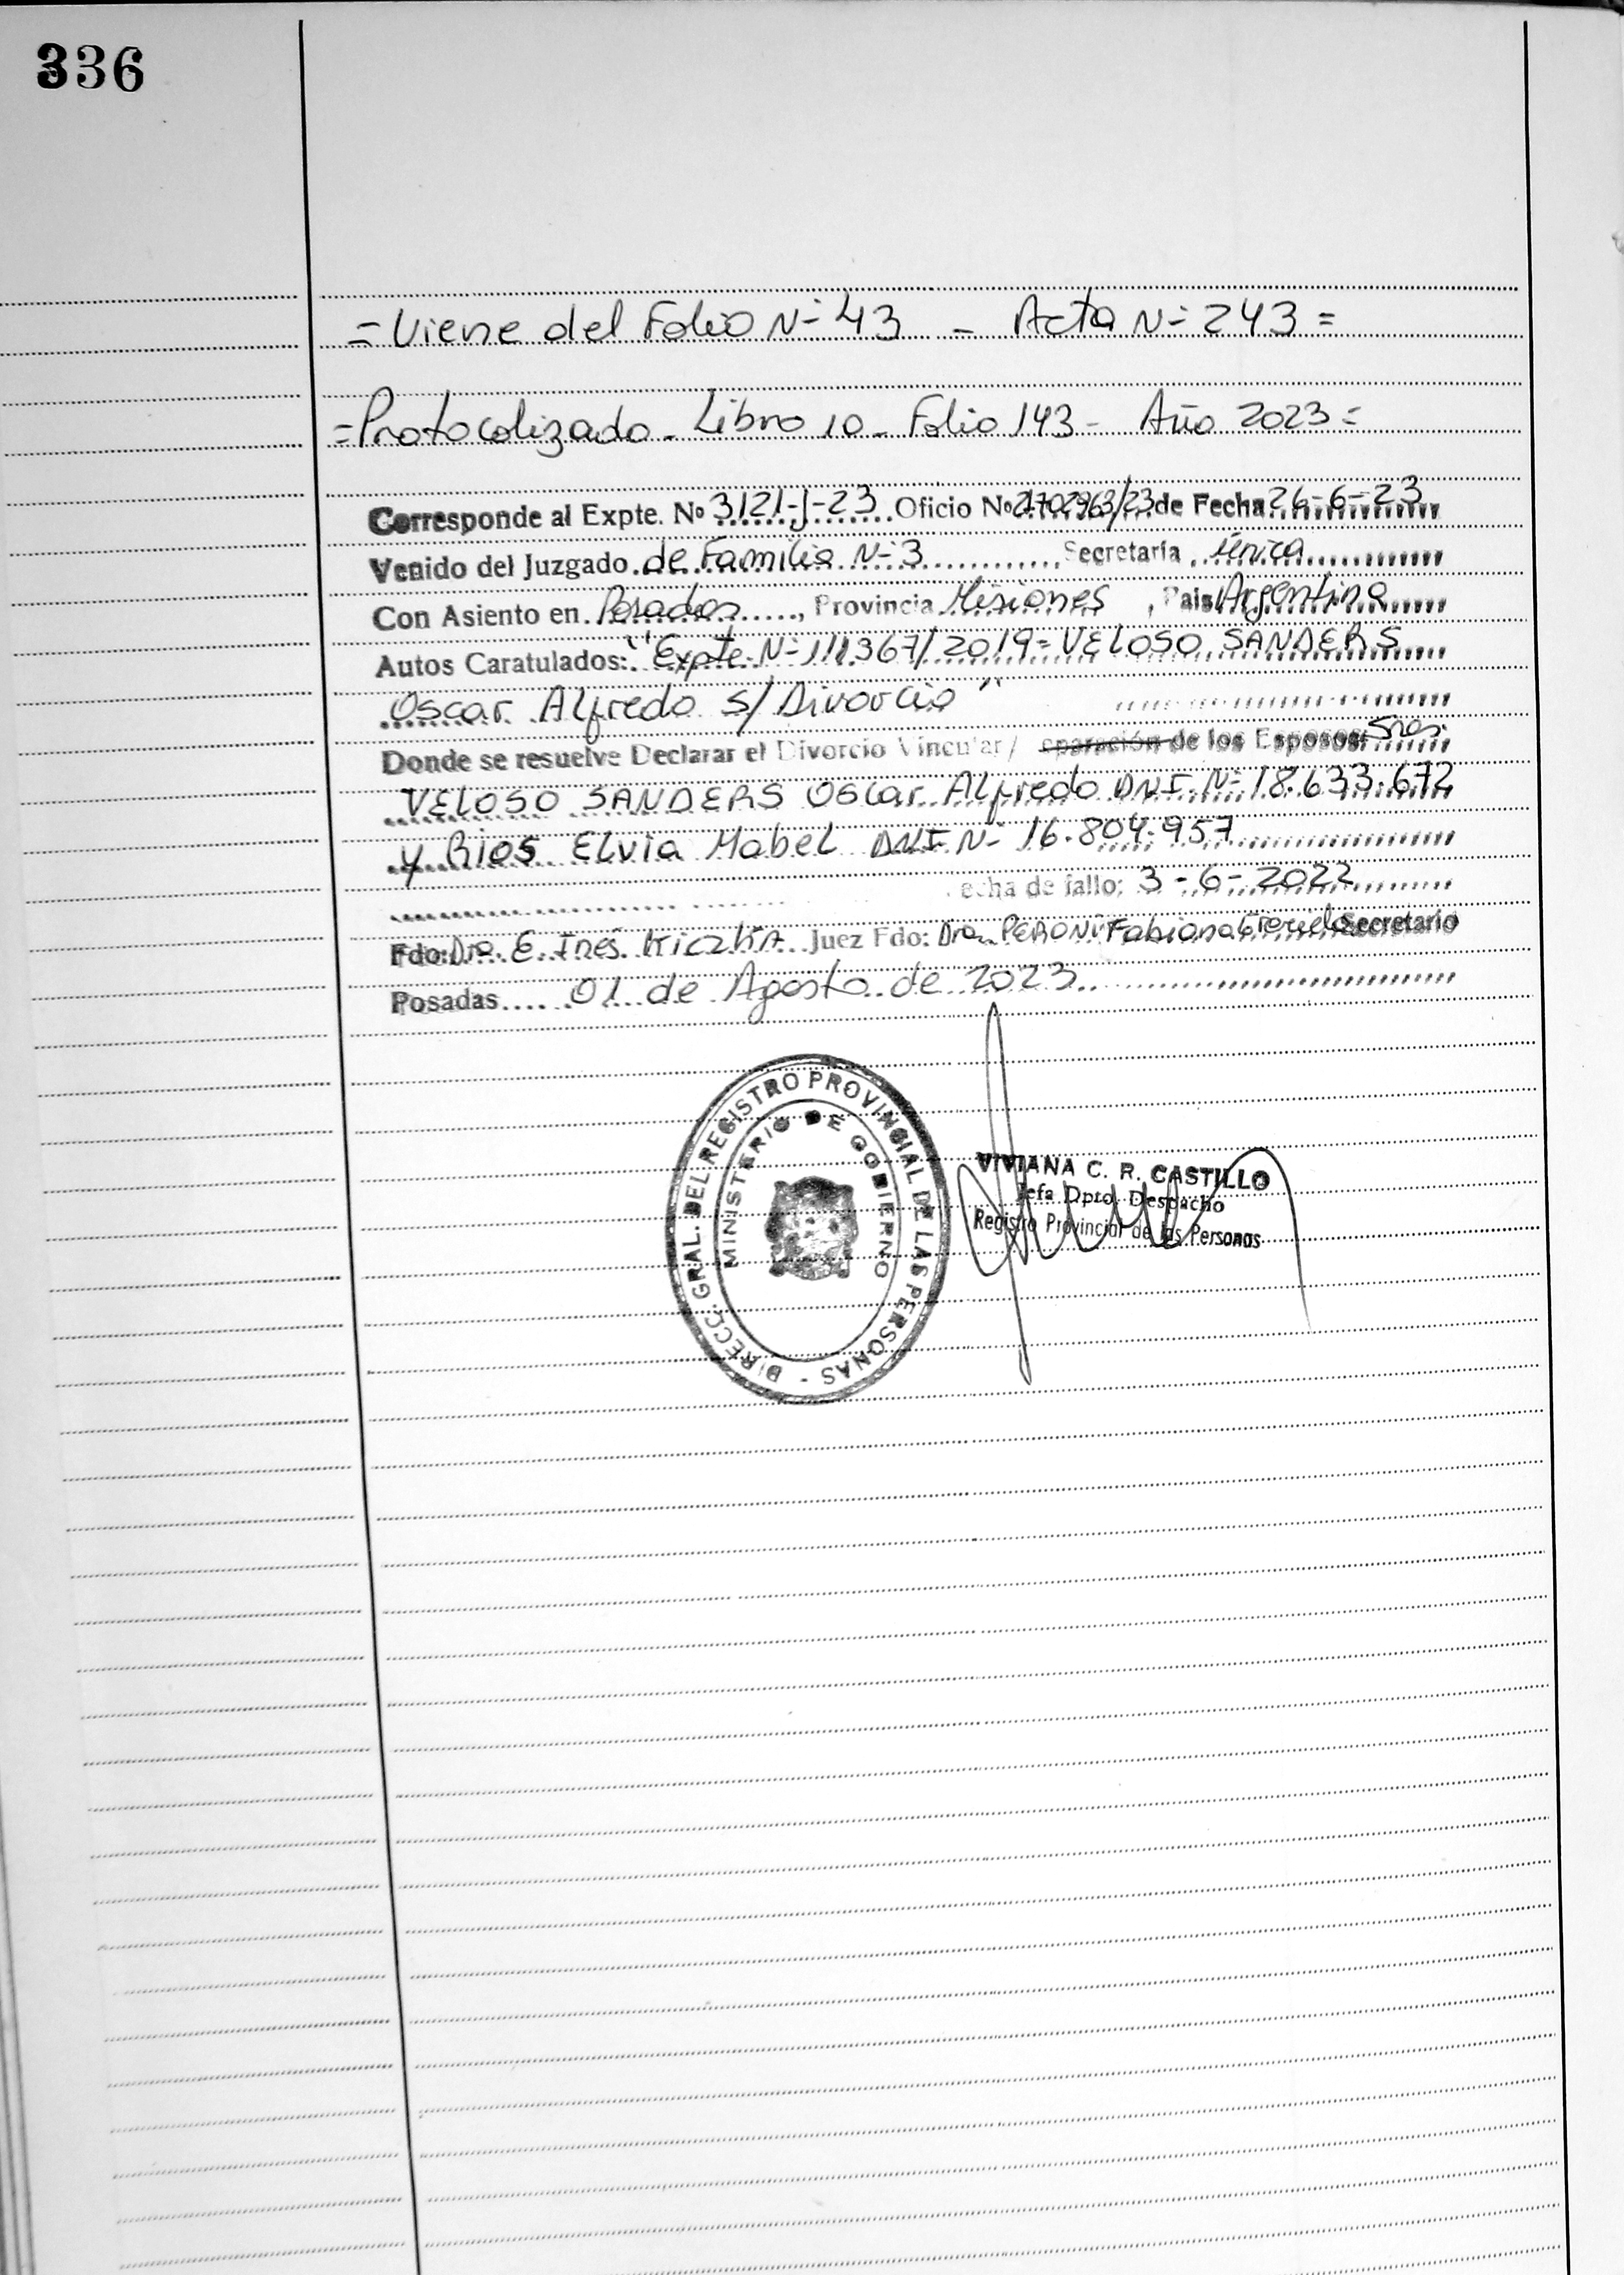 336
= Viene del Folio N- 43 - Acta N- 243 =
= Protocolizado - Libro 10 - Folio 143 - Año 2023 =
Corresponde al Expte. Nº 3121-J-23 Oficio Nº de Fecha 26-6-23
Venido del Juzgado de Familia N- 3 Secretaría única
Con Asiento en Posadas, Provincia Misiones, Pais Argentina
Autos Caratulados: "Expte. N- 111367/2019 = VELOSO SANDERS
Oscar Alfredo s/ Divorcio"
Donde se resuelve Declarar el Divorcio Vincular/ eparación de los Esposos: Sres.
VELOSO SANDERS Oscar Alfredo DNI. N- 18.633.672
y Rios Elvia Mabel DNI N- 16.804.957
echa de fallo: 3-6-2022
Fdo: Dra. E. Inés Juez Fdo: Dra. PERONI Fabiana Secretario
Posadas 01 de Agosto de 2023
DIRECC. GRAL. DEL REGISTRO PROVINCIAL DE LAS PERSONAS -
MINISTERIO DE GOBIERNO
VIVIANA C. R. CASTILLO
Jefa Dpto. Despacho
Registro Provincial de las Personas